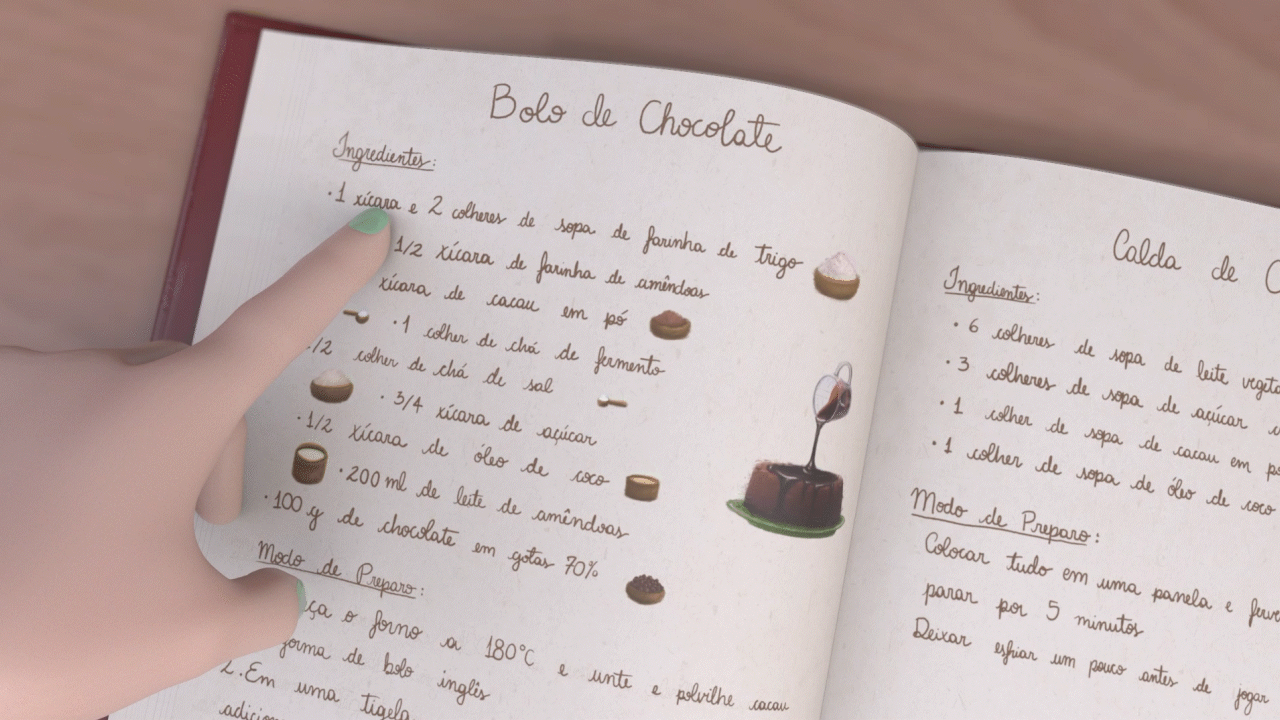 Bolo de Chocolate
Ingredientes:
· 1 xícara e 2 colheres de sopa de farinha de trigo
1/2 xícara de farinha de amêndoas
xícara de cacau em pó
· 1 colher de chá de fermento
1/2 colher de chá de sal
· 3/4 xícara de açúcar
· 1/2 xícara de óleo de coco
· 200 ml de leite de amêndoas
· 100 g de chocolate em gotas 70%
Modo de Preparo:
o forno a 180°C e unte e polvilhe cacau
forma de bolo inglês
2. Em uma tigela
Calda de
Ingredientes:
· 6 colheres de sopa de leite
· 3 colheres de sopa de açúcar
· 1 colher de sopa de cacau em
· 1 colher de sopa de óleo de coco
Modo de Preparo:
Colocar tudo em uma panela e
parar por 5 minutos
Deixar esfriar um pouco antes de jogar